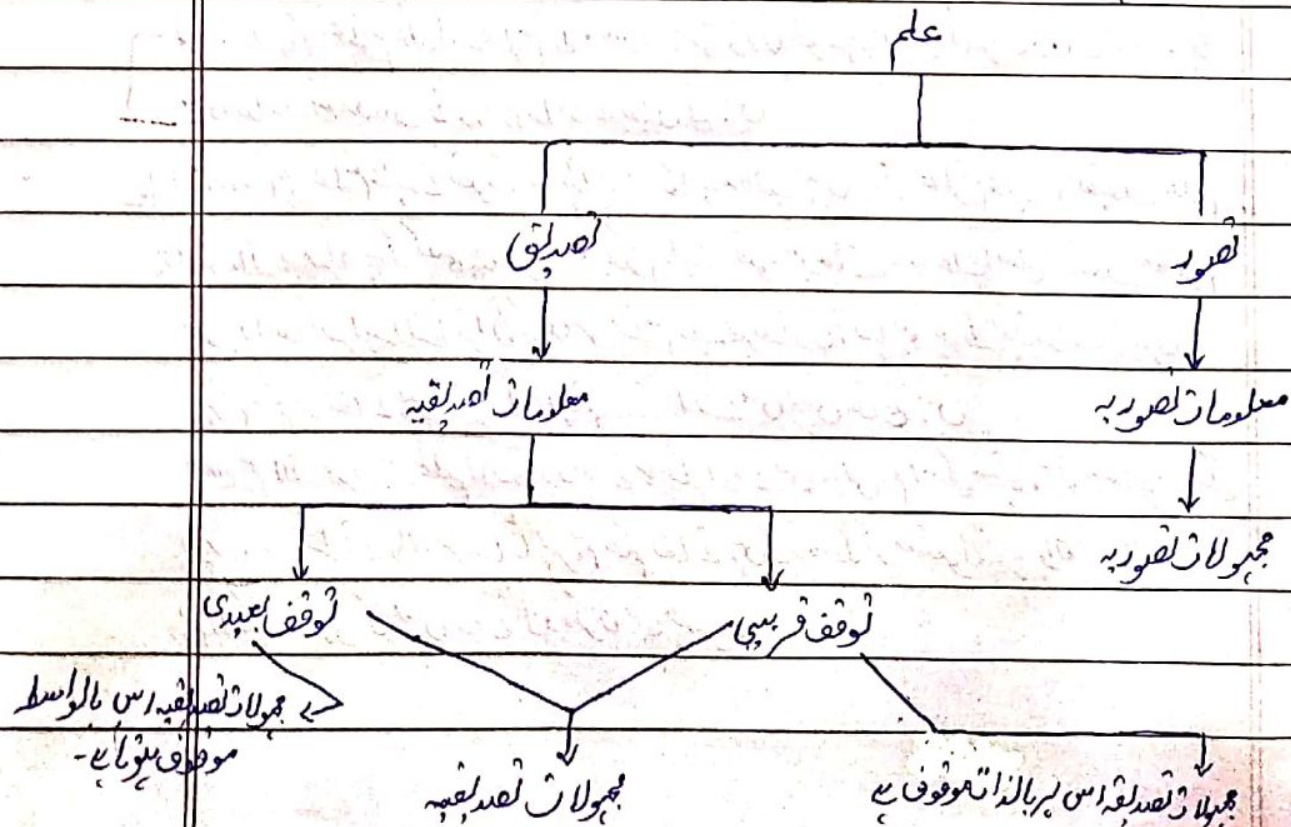 علم
تصور
تصدیق
معلومات تصوریہ
معلومات تصدیقیہ
مجہولات تصوریہ
توقف قریبی
توقف بعیدی
مجہولات تصدیقیہ اس بالواسطہ
موقوف ہوتا ہے۔
مجہولات تصدیقیہ
مجہولات تصدیقیہ اس پر بالذات موقوف ہے